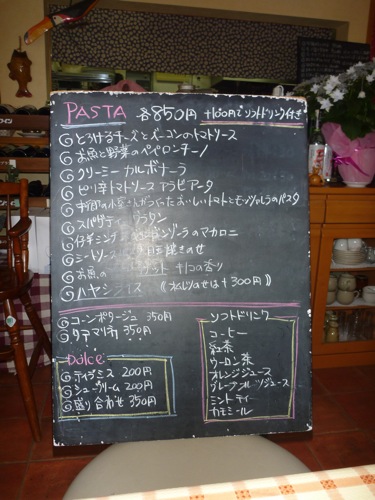 PASTA 各850円 +100円でソフトドリンク付き
とろけるチーズとベーコンのトマトソース
お魚と野菜のペペロンチーノ
クリーミー カルボナーラ
ピリ辛トマトソース アラビアータ
おいしいトマトとモッツァレラのパスタ
スパゲティ
仔羊ミンチ ゴンゾーラのマカロニ
ミートソース 目玉焼きのせ
お魚の キノコの香り
ハヤシライス 《オムレツのせは+300円》
コーンポタージュ 350円
タテマリネ 350円
Dolce
ティラミス 200円
シュークリーム 200円
盛り合わせ 350円
ソフトドリンク
コーヒー
紅茶
ウーロン茶
オレンジジュース
グレープフルーツジュース
ミントティ
カモミール